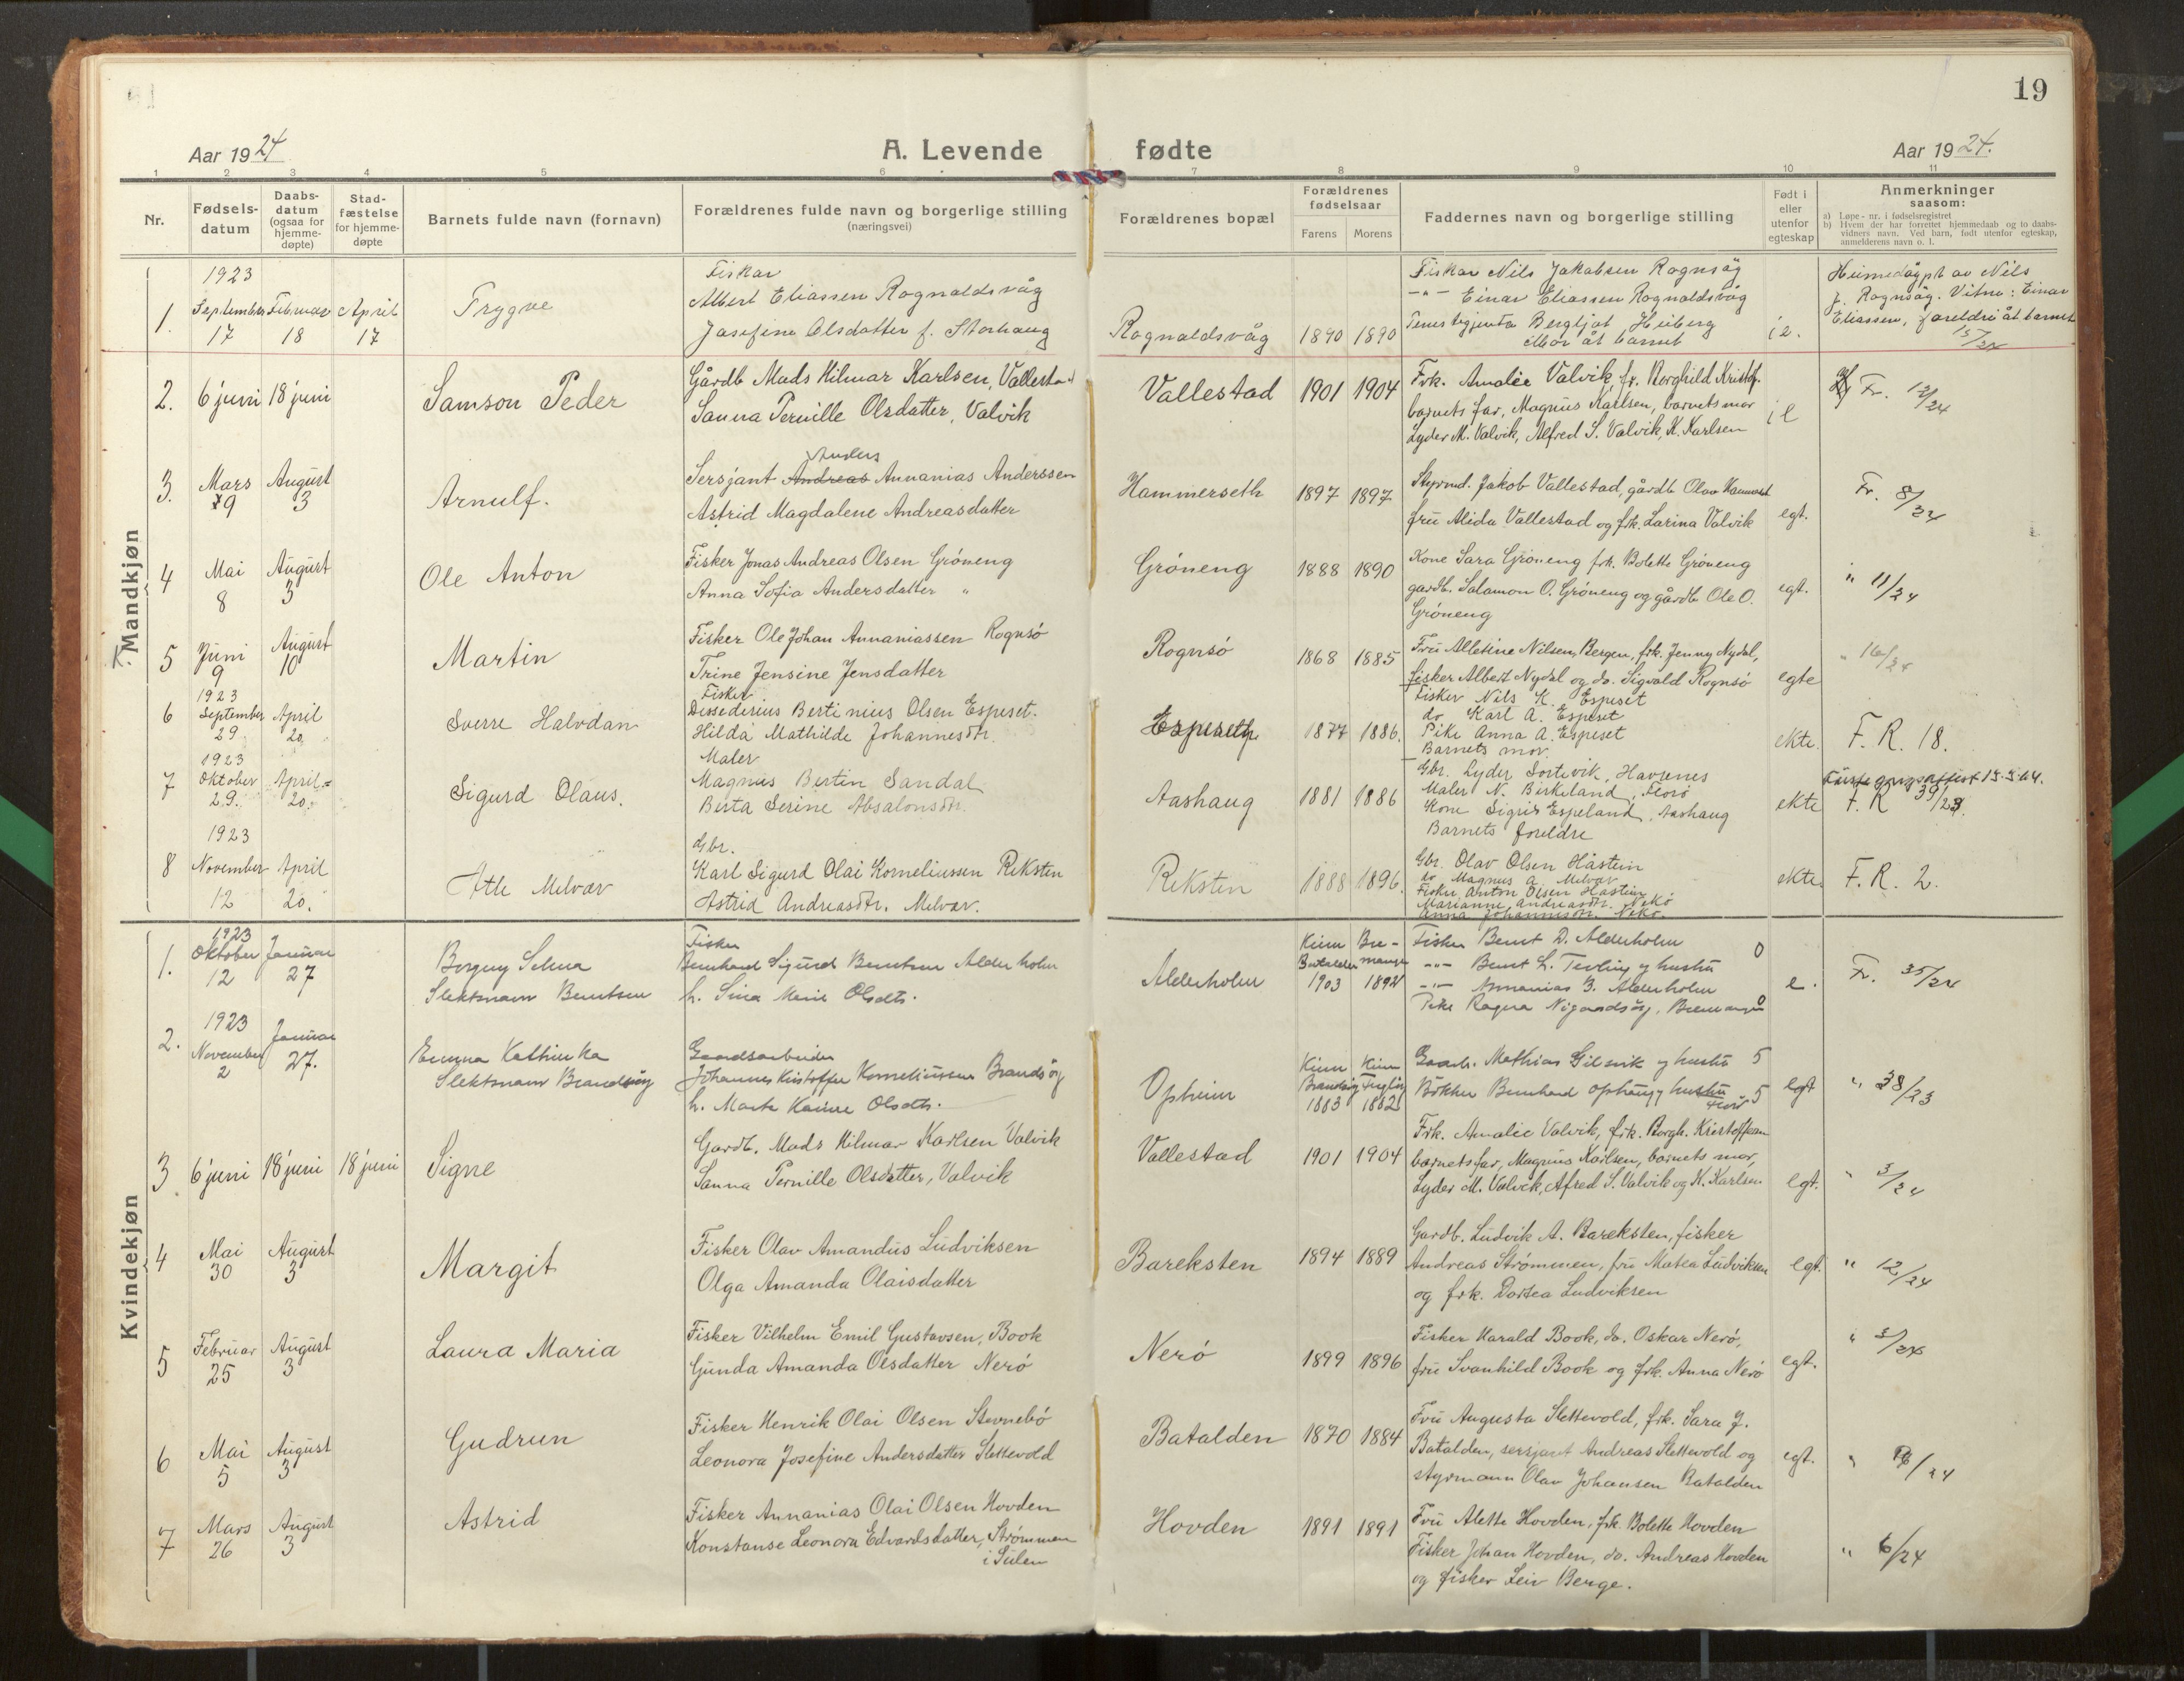 19
Aar 1924
A. Levende fødte
Aar 1924.
1 2 3 4 5 6 7 8 9 10 11
Nr.
Fødsels-
datum
Daabs-
datum
(ogsaa for
hjemme-
døpte)
Stad-
fæstelse
for hjemme-
døpte
Barnets fulde navn (fornavn)
Forældrenes fulde navn og borgerlige stilling
(næringsvei)
Forældrenes bopæl
Forældrenes
fødselsaar
Farens Morens
Faddernes navn og borgerlige stilling
Født i
eller
utenfor
egteskap
Anmerkninger
saasom:
a) Løpe-nr. i fødselsregistret
b) Hvem der har forrettet hjemmedaab og to daabs-
vidners navn. Ved barn, født utenfor egteskap,
anmelderens navn o. l.
Mandkjøn
1923
1. September 17 Februar 18 April 17
Trygve
Fiskar
Albert Eliassen Rognaldsvåg
Josefine Olsdotter f. Storhaug
Rognaldsvåg
1890 1890
Fiskar Nils Jakobsen Rognsåg
-"- Einar Eliassen Rognaldsvåg
Tenestegjenta Bergljot Heiberg
Mor åt barnet
i e.
Heimedøypt av Nils
J. Rognsåg. Vitne: Einar
Eliassen, foreldri åt barnet
15/24
2. 6 juni 18 juni
Samson Peder
Gårdb Mads Hilmar Karlsen, Vallestad
Sanna Pernille Olsdatter, Valvik
Vallestad
1901 1904
Frk. Amalie Valvik, fr. Borghild Kristof.
barnets far, Magnus Karlsen, barnets mor
Lyder M. Valvik, Alfred S. Valvik, K. Karlsen
i e
Fr. 12/24
3. Mars 9 August 3
Arnulf.
Anders
Sersjant Andreas Annanias Anderssen
Astrid Magdalene Andreasdatter
Hammerseth
1897 1897
Styrmd. Jakob Vallestad, gårdb Olav Hammerset
fru Alida Vallestad og frk. Larina Valvik
egt.
Fr. 8/24
4 Mai 8 August 3
Ole Anton
Fisker Jonas Andreas Olsen Grøneng
Anna Sofia Andersdatter "
Grøneng
1888 1890
Kone Sara Grøneng frk. Bolette Grøneng
gardb. Salamon O. Grøneng og gårdb Ole O.
Grøneng
egt.
" 11/24
5 Juni 9 August 10
Martin
Fisker Ole Johan Annaniassen Rognsø
Trine Jensine Jensdatter
Rognsø
1868 1885
Fru Alletine Nilsen, Bergen, frk. Jenny Nydal,
fisker Albert Nydal og do. Sigvald Rognsø
egte
" 16/24
1923
6 September 29 April 20
Sverre Halvdan
Fisker
Dessederius Bertinius Olsen Espeset.
Hilda Mathilde Johannesdtr.
Espeseth
1877 1886.
Fisker Nils K. Espeset
do Karl A. Espeset
Pike Anna A. Espeset
Barnets mor
ekte.
F. R. 18.
1923
7 Oktober 29. April 20.
Sigurd Olaus.
Maler
Magnus Bertin Sandal
Berta Serine Absalonsdtr.
Aashaug
1881 1886
Gbr. Lyder Sortevik, Havrenes
Maler N. Birkeland, Florø
Kone Sigrid Espeland, Aashaug
Barnets foreldre
ekte
F. R 39/23.
1923
8 November 12 April 20.
Atle Melvær
Gbr.
Karl Sigurd Olai Korneliussen Reksten
Astrid Andreasdtr. Melvær.
Reksten
1888 1896.
Gbr. Olav Olsen Håstein
do Magnus A. Melvær
Fisker Anton Olsen Håstein
Marianne Andreasdtr. Nekø
Anna Johannesdtr. Nekø.
ekte.
F. R. 2.
Kvindekjøn
1923
1. Oktober 12 Januar 27
Borgny Selma
Slektsnavn Berntsen
Fisker
Bernhard Sigurd Berntsen Alderholm
h. Sina Marie Olsdtr.
Alderholm
Kinn Bre-
Batalden manger
1903 1892
Fisker Bernt D. Alderholm
-"- Bernt L. Tevling og hustru
-"- Annanias B. Alderholm
Pike Ragna Nigardsøy, Bremanger
e.
Fr. 35/24
1923
2. November 2 Januar 27.
Emma Kathinka
Slektsnavn Brandsøy
Gaardsarbeider
Johannes Kristoffer Korneliussen Brandsøy
h. Marta Karine Olsdtr.
Opheim
Kinn Kinn
Brandsøy
1883 1882
Gaardb. Mathias Gilsvik og hustru 5
Bøkker Bernhard Ophaug og hustru 5
Florø
egt
" 38/23
3 6 juni 18 juni 18 juni
Signe
Gardb. Mads Hilmar Karlsen Valvik
Sanna Pernille Olsdatter, Valvik
Vallestad
1901 1904
Frk. Amalie Valvik, frk. Borgh. Kristoffersen
barnets far, Magnus Karlsen, barnets mor,
Lyder M. Valvik, Alfred S. Valvik og K. Karlsen
egt.
" 3/24
4 Mai 30 August 3
Margit
Fisker Olav Amandus Ludviksen
Olga Amanda Olaisdatter
Bareksten
1894 1889
Gardb. Ludvik A. Bareksten, fisker
Andreas Strømmen, fru Matea Ludviksen
og frk. Dortea Ludviksen
egt.
" 12/24
5 Februar 25 August 3
Laura Maria
Fisker Vilhelm Emil Gustavsen, Book
Gunda Amanda Olsdatter Nerø
Nerø
1899 1896
Fisker Harald Book, do. Oskar Nerø,
fru Svanhild Book og frk. Anna Nerø
egt.
" 3/24
6 Mai 5 August 3
Gudrun
Fisker Henrik Olai Olsen Stevnebø
Leonora Josefine Andersdatter Slettevold
Batalden
1870 1884
Fru Augusta Slettevold, frk. Sara J.
Batalden, sersjant Andreas Slettevold og
styrmann Olav Johansen Batalden
egt.
7 Mars 26 August 3
Astrid
Fisker Annanias Olai Olsen Hovden
Konstanse Leonora Edvardsdatter, Strømmen
i Sulen
Hovden
1891 1891
Fru Alette Hovden, frk. Bolette Hovden
Fisker Johan Hovden, do. Andreas Hovden
og fisker Leiv Berge.
" 6/24